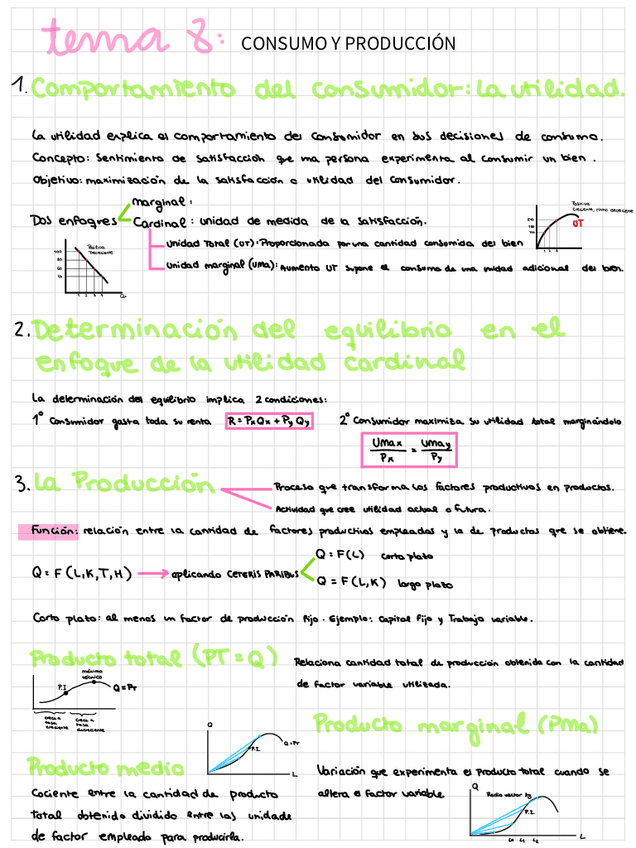 tema 8: CONSUMO Y PRODUCCIÓN
1. Comportamiento del consumidor: La utilidad.
La utilidad explica al comportamiento del consumidor en sus decisiones de consumo.
Concepto: Sentimiento de satisfacción que una persona experimenta al consumir un bien.
Objetivo: maximización de la satisfacción o utilidad del consumidor.
Dos enfoques
marginal:
Cardinal: unidad de medida de la satisfacción.
Unidad Total (UT): Proporcionada por una cantidad consumida del bien
Unidad marginal (UMa): Aumento UT supone el consumo de una unidad adicional del bien.
Positiva
decreciente
Q
Positiva
creciente, como decreciente
UT
2. Determinación del equilibrio en el
enfoque de la utilidad cardinal
La determinación del equilibrio implica 2 condiciones:
1º Consumidor gasta toda su renta R = Px Qx + Py Qy
2º Consumidor maximiza su utilidad total marginándolo
UMax / Px = UMay / Py
3. La Producción
Proceso que transforma los factores productivos en productos.
Actividad que cree utilidad actual o futura.
Función: relación entre la cantidad de factores productivos empleados y la de productos que se obtiene.
Q = F (L, K, T, H) → aplicando CETERIS PARIBUS
Q = F (L) corto plazo
Q = F (L, K) largo plazo
Corto plazo: al menos un factor de producción fijo. Ejemplo: Capital fijo y Trabajo variable.
Producto total (PT = Q)
Relaciona cantidad total de producción obtenida con la cantidad
de factor variable utilizada.
máximo
técnico
P.I
Q = PT
crece a
tasa
creciente
crece a
tasa
decreciente
Producto marginal (PMa)
Variación que experimenta el producto total cuando se
altera el factor variable
Q
Radio vector tg
P.I.
L0 L1 L2
L
Producto medio
Cociente entre la cantidad de producto
total obtenido dividido entre las unidades
de factor empleado para producirla.
Q
P.I.
Q = PT
L